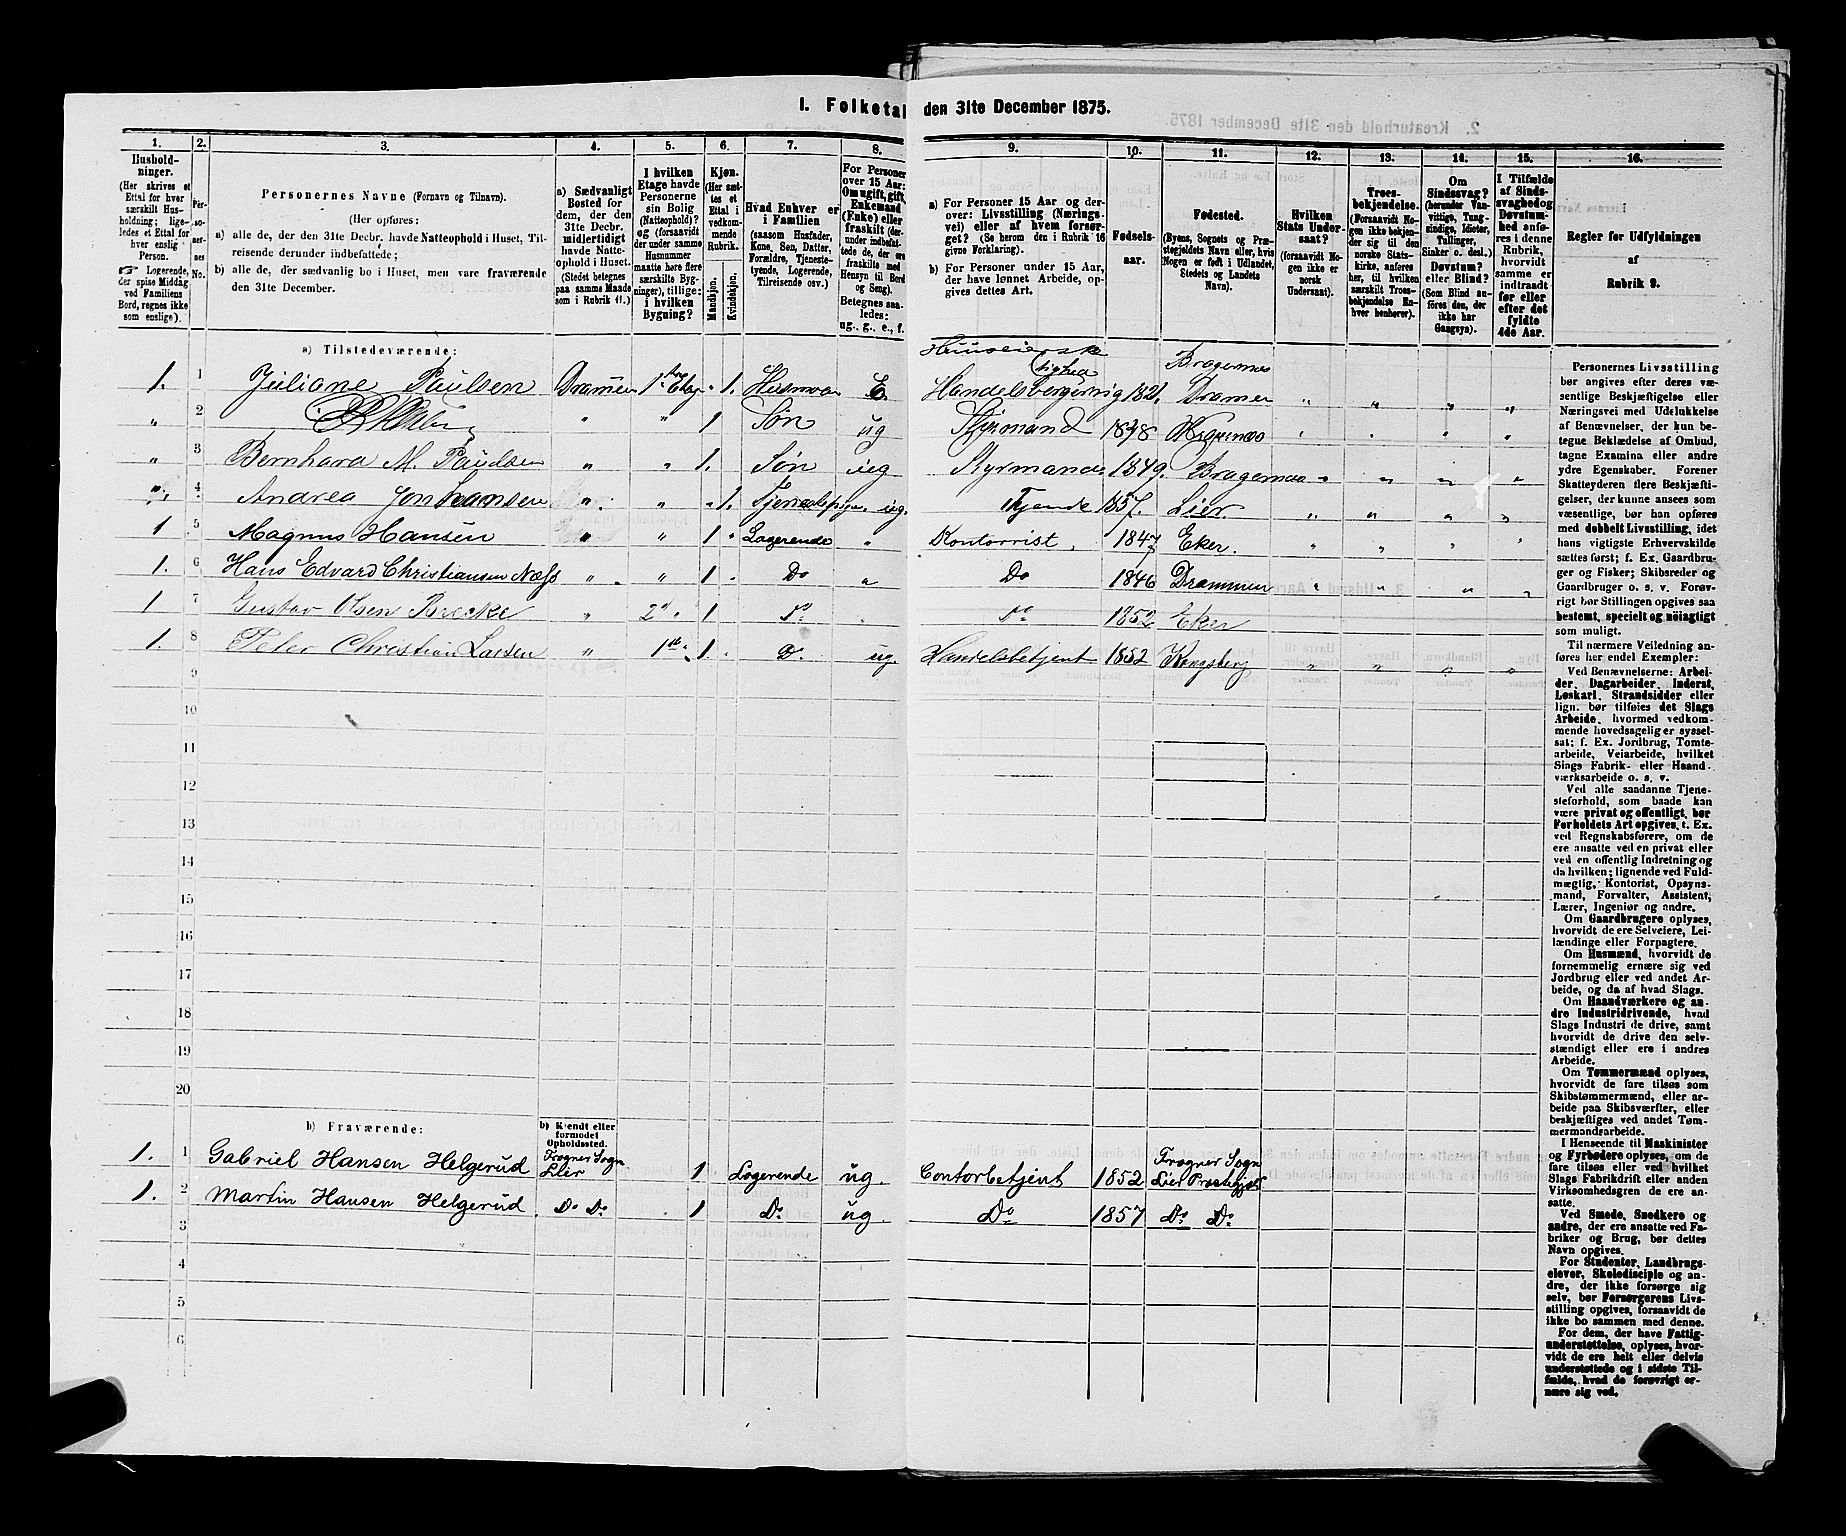 1. Folketal den 31te December 1875.
1. 2. 3. 4. 5. 6. 7. 8. 9. 10. 11. 12. 13. 14. 15. 16.
Hushold-
ninger.
(Her skrives et
Ettal for hver
særskilt Hus-
holdning; lige-
ledes et Ettal for
hver enslig
Person.
Logerende,
der spise Middag
ved Familiens
Bord, regnes ikke
som enslige).
Per-
so-
ner-
nes
No.
Personernes Navne (Fornavn og Tilnavn).
(Her opføres:
a) alle de, der den 31te Decbr. havde Natteophold i Huset, Til-
reisende derunder indbefattede;
b) alle de, der sædvanlig bo i Huset, men vare fraværende
den 31te December.
a) Sædvanligt
Bosted for
dem, der den
31te Decbr.
midlertidigt
havde Natte-
ophold i Huset.
(Stedet betegnes
paa samme Maade
som i Rubrik 11.)
I hvilken
Etage havde
Personerne
sin Bolig
(Natteophold)?
og (forsaavidt
der under samme
Husnummer
maatte høre flere
særskilte Byg-
ninger), tillige:
i hvilken
Bygning?
Kjøn.
(Her sæt-
tes et
Ettal i
vedkom-
mende
Rubrik.
Mandkjøn.
Kvindekjøn.
Hvad Enhver er
i Familien
(saasom Husfader,
Kone, Søn, Datter,
Forældre, Tjeneste-
tyende, Logerende,
Tilreisende osv.)
For Personer
over 15 Aar:
Om ugift, gift,
Enkemand
(Enke) eller
fraskilt (der-
under indbefat-
tede de, der ere
fraskilte med
Hensyn til Bord
og Seng).
Betegnes saa-
ledes:
ug., g., e., f.
a) For Personer 15 Aar og der-
over: Livsstilling (Nærings-
vei) eller af hvem forsør-
get? (Se herom den i Rubrik 16
givne Forklaring).
b) For Personer under 15 Aar,
der have lønnet Arbeide, op-
gives dettes Art.
Fødsels-
aar.
Fødested.
(Byens, Sognets og Præ-
stegjeldets Navn eller, hvis
Nogen er født i Udlandet,
Stedets og Landets
Navn).
Hvilken
Stats Under-
saat?
(forsaavidt No-
gen ikke er
norsk
Undersaat).
Troes-
bekjendelse.
(Forsaavidt No-
gen ikke bekjen-
der sig til den
norske Stats-
kirke, anføres
her, til hvilken
særskilt Troes-
bekjendelse En-
hver henhører).
Om
Sindssvag?
(herunder Van-
vittige, Tung-
sindige, Idioter,
Tullinger,
Sinker o. desl.)
Døvstum?
eller Blind?
(Som Blind an-
føres den, der
ikke har
Gangsyn).
I Tilfælde
af Sinds-
svaghed og
Døvstum-
hed anfø-
res i denne
Rubrik,
hvorvidt
samme er
indtraadt
før eller
efter det
fyldte
4de Aar.
Regler for Udfyldningen
af
Rubrik 9.
a) Tilstedeværende:
1. 1 Juliane Paulsen Drammen 1ste Etage 1. E. Huuseierske Handelsborgerrighed 1821. Bragernes Drammen
" 2 " " 1 Søn ug Styrmand
" 3 Bernhard M. Paulsen " " 1. Søn ug Styrmand 1849. Bragernæs
4 Andrea " " 1. ug. Tjenende 1857. Lier.
1 5 Magnus Hansen " 1 Logerende " Kontorrist 1847 Eker.
1. 6 Hans Edvard Christiansen Næss " " 1 Do " Do 1846 Drammen
1 7 Gustav Olsen Brecke " 2d 1 Do Do 1852 Eker
1. 8 Peter Christian Larsen " 1ste 1. D. ug. Handelsbetjent 1852 Kongsberg
9
10
11
12
13
14
15
16
17
18
19
20
b) Fraværende:
b) Kjendt eller
formodet
Opholdssted.
1. 1 Gabriel Hansen Helgerud Frogner Sogn Lier 1 Logerende ug. Contorbetjent 1852 Frogner Sogn Lier Præstegjeld
1. 2 Martin Hansen Helgerud. Do Do 1 Do ug. Do 1857 Do Do
3
4
5
6
Personernes Livsstilling
bør angives efter deres væ-
sentlige Beskjæftigelse eller
Næringsvei med Udelukkelse
af Benævnelser, der kun be-
tegne Beklædelse af Ombud,
tagne Examina eller andre
ydre Egenskaber. Forener
Skatteyderen flere Beskjæfti-
gelser, der kunne ansees som
væsentlige, bør han opføres
med dobbelt Livsstilling, idet
hans vigtigste Erhvervskilde
sættes først; f. Ex. Gaardbru-
ger og Fisker; Skibsreder og
Gaardbruger o. s. v. Forøv-
rigt bør Stillingen opgives saa
bestemt, specielt og nøiagtigt
som muligt.
Til nærmere Veiledning an-
føres her endel Exempler:
Ved Benævnelserne: Arbei-
der, Dagarbeider, Inderst,
Løskarl, Strandsidder eller
lign. bør tilføies det Slags
Arbeide, hvormed vedkom-
mende hovedsagelig er syssel-
sat; f. Ex. Jordbrug, Tomte-
arbeide, Veiarbeide, hvilket
Slags Fabrik- eller Haand-
værksarbeide o. s. v.
Ved alle saadanne Tjene-
steforhold, som baade kan
være privat og offentligt, bør
Forholdets Art opgives, t. Ex.
ved Regnskabsførere, om de
ere ansatte ved en privat eller
ved en offentlig Indretning og
da hvilken; lignende ved Fuld-
mægtig, Kontorist, Opsyns-
mand, Forvalter, Assistent,
Lærer, Ingeniør og andre.
Om Gaardbrugere oplyses,
hvorvidt de ere Selveiere, Lei-
lændinge eller Forpagtere.
Om Husmænd, hvorvidt de
fornemmelig ernære sig ved
Jordbrug eller ved andet Ar-
beide, og da af hvad Slags.
Om Haandværkere og an-
dre Industridrivende, hvad
Slags Industri de drive, samt
hvorvidt de drive den selv-
stændigt eller ere i andres
Arbeide.
Om Tømmermænd oplyses,
hvorvidt de fare tilsøs som
Skibstømmermænd, eller ar-
beide paa Skibsværfter, eller
beskjæftiges ved andet Tøm-
mermandsarbeide.
I Henseende til Maskinister
og Fyrbødere oplyses, om de
fare tilsøs eller ved hvilket
Slags Fabrikdrift eller anden
Virksomhedsgren de ere an-
satte.
Ved Smede, Snedkere og
andre, der ere ansatte ved Fa-
briker og Brug, bør dettes
Navn opgives.
For Studenter, Landbrugs-
elever, Skoledisciple og an-
dre, der ikke forsørge sig
selv, bør Forsørgerens Livs-
stilling opgives, forsaavidt de
ikke bo sammen med denne.
For dem, der have Fattig-
understøttelse, oplyses, hvor-
vidt de ere helt eller delvis
understøttede og i sidste Til-
fælde, hvad de forøvrigt er-
nære sig ved.